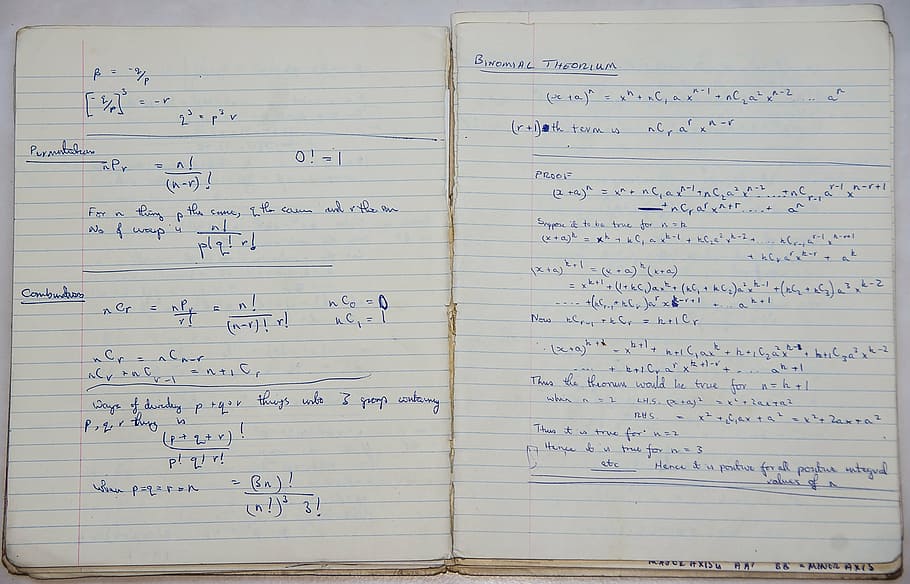 β = -q/p
[-q/p]³ = -r
q³ = p³r
Permutations
nPr = n!/(n-r)! 0! = 1
For n things p the same, q the same and r the
No of ways is n!/p!q!r!
Combinations
nCr = nPr/r! = n!/(n-r)! r! nC0 = 0
nC1 = 1
nCr = nCn-r
nCr + nCr-1 = n+1Cr
Ways of dividing p+q+r things into 3 group containing
p, q, r things is
(p+q+r)!/p! q! r!
when p=q=r=n = (3n)!/(n!)³ 3!
BINOMIAL THEORIUM
(x+a)ⁿ = xⁿ + nC1 a xⁿ⁻¹ + nC2 a² xⁿ⁻² .... aⁿ
(r+1)th term is nCr aʳ xⁿ⁻ʳ
PROOF
(x+a)ⁿ = xⁿ + nC1 a xⁿ⁻¹ + nC2 a² xⁿ⁻² ...... + nCr-1 aʳ⁻¹ xⁿ⁻ʳ⁺¹
+ nCr aʳ xⁿ⁺ʳ .....+ aⁿ
Suppose it to be true for n=k
(x+a)ᵏ = xᵏ + kC1 a xᵏ⁻¹ + kC2 a² xᵏ⁻² + .... kCr-1 aʳ⁻¹
+ kCr aʳ xᵏ⁻ʳ + aᵏ
(x+a)ᵏ⁺¹ = (x+a)ᵏ(x+a)
= xᵏ⁺¹ + (1+kC1)axᵏ + (kC1+kC2)a²xᵏ⁻¹ + (kC2+kC3)a³xᵏ⁻²
..... + (kCr-1+kCr)aʳ xᵏ⁻ʳ⁺¹ + ... aᵏ⁺¹
Now kCr-1 + kCr = k+1Cr
(x+a)ᵏ⁺¹ = xᵏ⁺¹ + k+1C1axᵏ + k+1C2a² + k+1C3a³ xᵏ⁻²
.... + k+1Cr aʳ xᵏ⁺¹⁻ʳ + .. aᵏ⁺¹
Thus the theorium would be true for n=k+1
when n=2 L.H.S. (x+a)² = x²+2ax+a²
RHS. = x²+2C1ax+a² = x²+2ax+a²
Thus it is true for n=2
Hence it is true for n=3
etc Hence it is positive for all positive integral
values of n
MAJOR AXIS AA' BB = MINOR AXIS